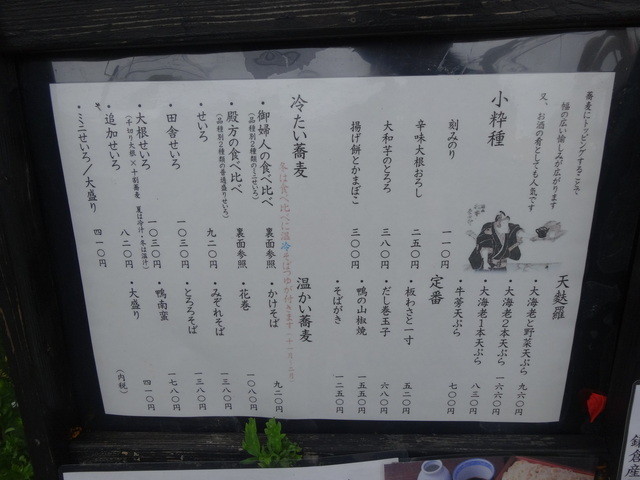 蕎麦にトッピングすることで、
幅の広い愉しみが広がります
又、お酒の肴としても人気です
小粋種
刻みのり 一一〇円
辛味大根おろし 二五〇円
大和芋のとろろ 三八〇円
揚げ餅とかまぼこ 三〇〇円
天麩羅
・大海老と野菜天ぷら 九六〇円
・大海老2本天ぷら 一六六〇円
・大海老1本天ぷら 八三〇円
・牛蒡天ぷら 七〇〇円
定番
・板わさと一寸 五二〇円
・だし巻玉子 六八〇円
・鴨の山椒焼 一五五〇円
・そばがき 一二五〇円
冷たい蕎麦
・御婦人の食べ比べ 裏面参照
(品種別2種類のミニせいろ)
・殿方の食べ比べ 裏面参照
(品種別2種類の普通盛りせいろ)
・せいろ 九二〇円
・田舎せいろ 一〇三〇円
・大根せいろ 一〇三〇円
(千切り大根×十割蕎麦 夏は冷汁・冬は温汁)
・追加せいろ 八二〇円
・ミニせいろ/大盛り 四一〇円
温かい蕎麦
・かけそば 九二〇円
・花巻 一〇八〇円
・みぞれそば 一三八〇円
・とろろそば 一三八〇円
・鴨南蛮 一七八〇円
・大盛り 四一〇円
(内税)
鎌倉産